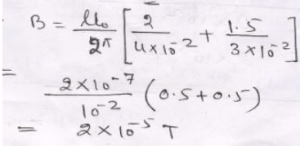 B = μ₀/2π [2/4×10⁻² + 1.5/3×10⁻²]
=
2×10⁻⁷/10⁻² (0.5+0.5)
= 2×10⁻⁵ T